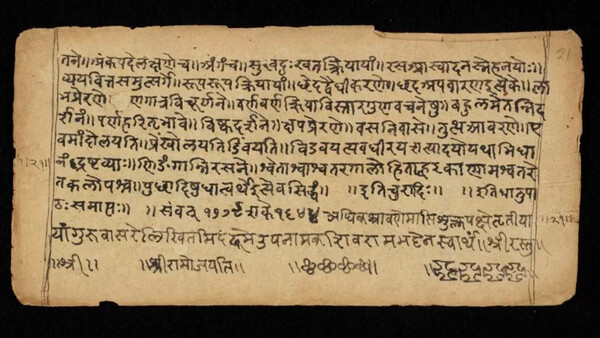 तने॥अंकपदेलक्षणेच॥अंगच॥सुखदुःखतत्क्रियायां॥रसआस्वादनस्नेहनयोः॥ 21
व्ययवित्तसमुत्सर्गे॥रूपरूपक्रियायां॥छेदद्वैधीकरणे॥छदअपवारणइत्येके॥ला
भप्रेरणे॥ व्रणगात्रविचूर्णने॥वर्णवर्णक्रियाविस्तारगुणवचनेषु॥बहुलमेतन्निद
र्शनं॥पर्णहरितभावे॥विष्कदर्शने॥क्षपप्रेरणे॥वसनिवासे॥तुत्थआवरणे॥ए
वमांदोलयति॥प्रेंखोलयतिविडंबयति॥अवधीरयत्यादयोयथाभिधा
॥२१॥ नंद्रष्टव्याः॥णिङंगान्निरसने॥श्वेताश्वाश्वतरगालोडिताह्वरकाणामश्वतरे
तकलोपश्च॥पुच्छादिषुधात्वर्थइत्येवसिद्धं॥ ॥इतिचुरादिः॥ ॥इतिधातुपा
ठःसमाप्तः॥ ॥संवत् १७७९शके१६४४ अधिकश्रावणेमासिशुक्लपक्षेतृतीया ॥२१॥
यांगुरुवासरेलिखितमिदं उपनामकशिवरामभट्टेनस्वार्थं॥श्रीरस्तु॥
॥श्री॥ ॥श्रीरामोजयति॥